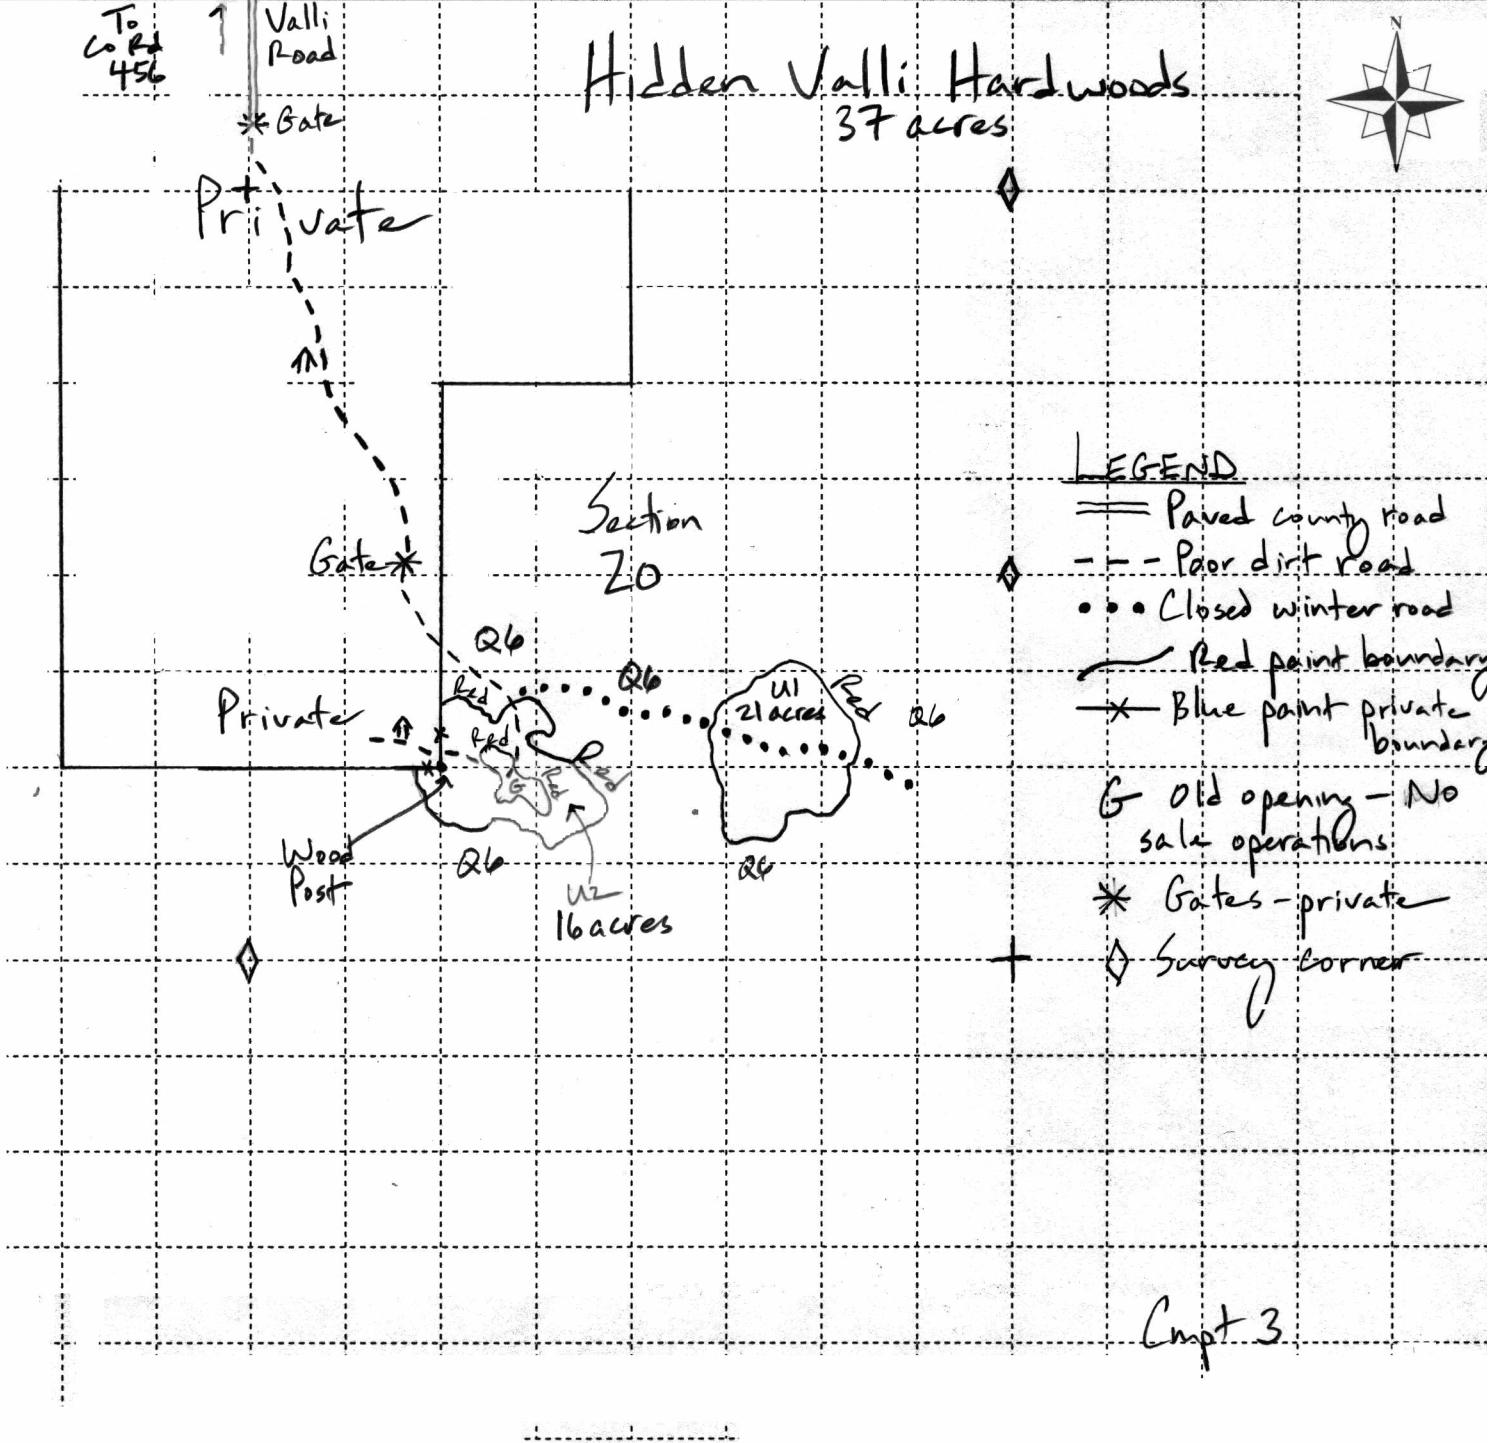 To
Co Rd
456
Valli
Road
Hidden Valli Hardwoods
37 acres
N
Gate
Private
Section
20
Gate
Q6
Q6
Q6
Q6
Q6
Red
Red
Red
Red
Red
U1
21 acres
Private
G
Wood
Post
U2
16 acres
LEGEND
Paved county road
Poor dirt road
Closed winter road
Red paint boundary
Blue paint private
boundary
G Old opening - No
sale operations
Gates - private
Survey corner
Cmpt 3